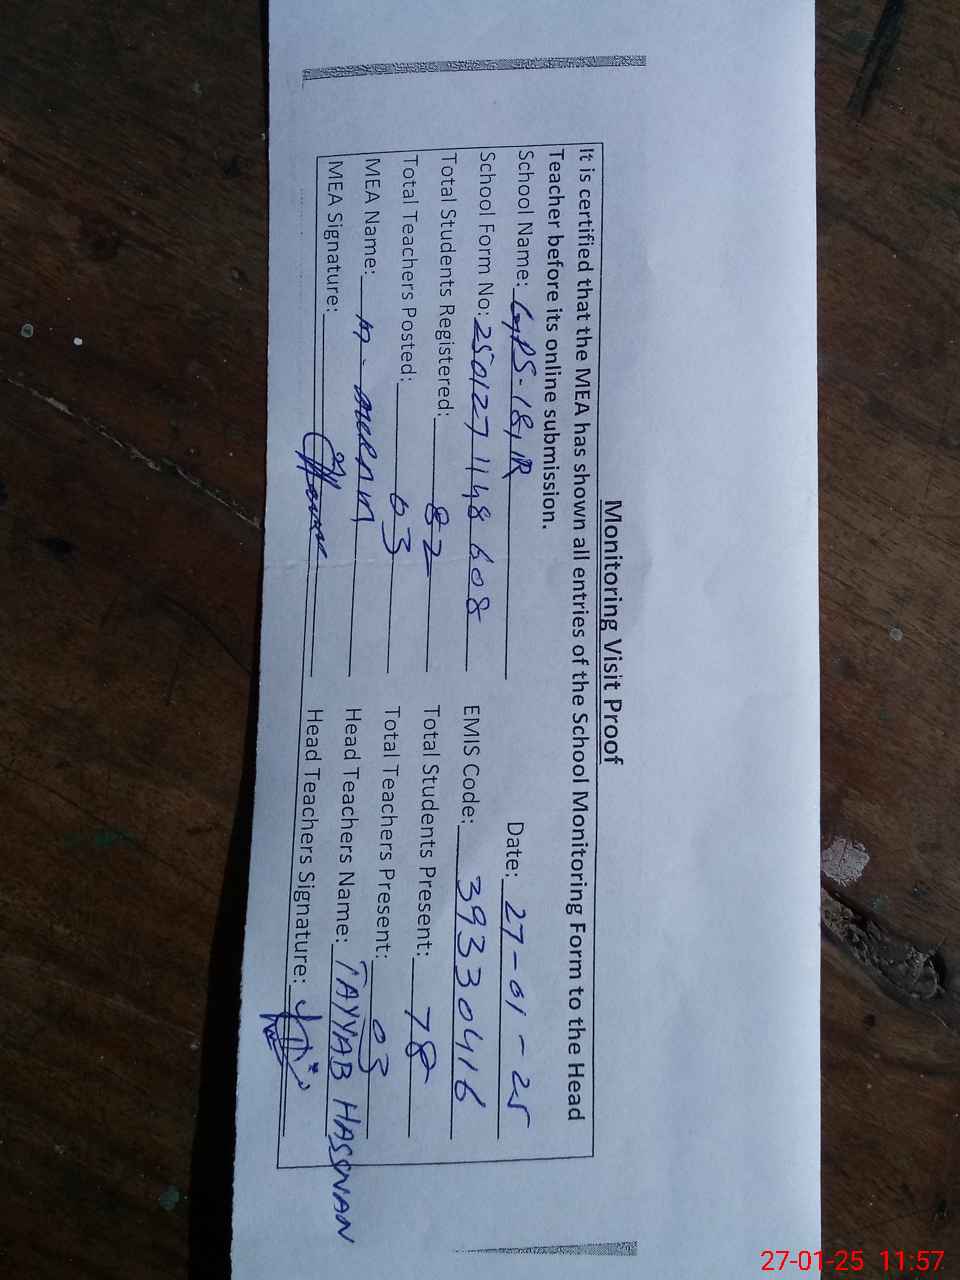 Monitoring Visit Proof
It is certified that the MEA has shown all entries of the School Monitoring Form to the Head
Teacher before its online submission.
School Name: GPS-18,1R Date: 27-01-25
School Form No: 250127 1148 608 EMIS Code: 39330416
Total Students Registered: 82 Total Students Present: 78
Total Teachers Posted: 03 Total Teachers Present: 03
MEA Name: M- Head Teachers Name: TAYYAB HASSNAN
MEA Signature: Head Teachers Signature:
27-01-25 11:57